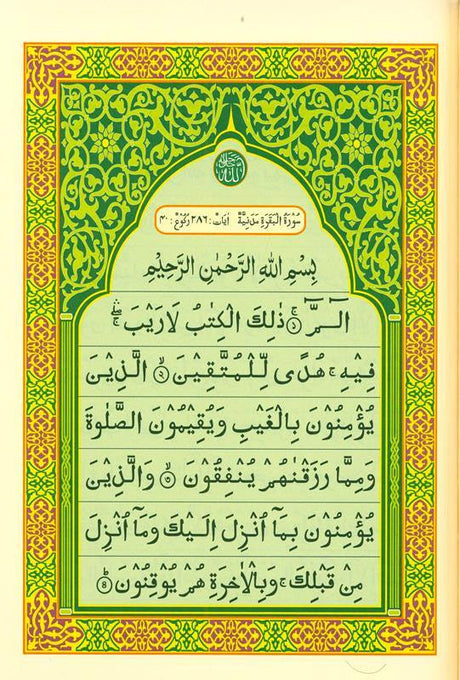 الله جل جلاله
سُوْرَةُ الْبَقَرَةِ مَدَنِيَّةٌ اٰيَات: ۲۸۶ رُكُوْع: ۴۰
بِسْمِ اللهِ الرَّحْمٰنِ الرَّحِيْمِ
الٓـمّٓ ۚ ۝۱ ذٰلِكَ الْكِتٰبُ لَا رَيْبَ ۛۖۚ
فِيْهِ ۚۛ هُدًى لِّلْمُتَّقِيْنَ ۙ ۝۲ الَّذِيْنَ
يُؤْمِنُوْنَ بِالْغَيْبِ وَيُقِيْمُوْنَ الصَّلٰوةَ
وَمِمَّا رَزَقْنٰهُمْ يُنْفِقُوْنَ ۙ ۝۳ وَالَّذِيْنَ
يُؤْمِنُوْنَ بِمَآ اُنْزِلَ اِلَيْكَ وَمَآ اُنْزِلَ
مِنْ قَبْلِكَ ۚ وَبِالْاٰخِرَةِ هُمْ يُوْقِنُوْنَ ؕ ۝۴